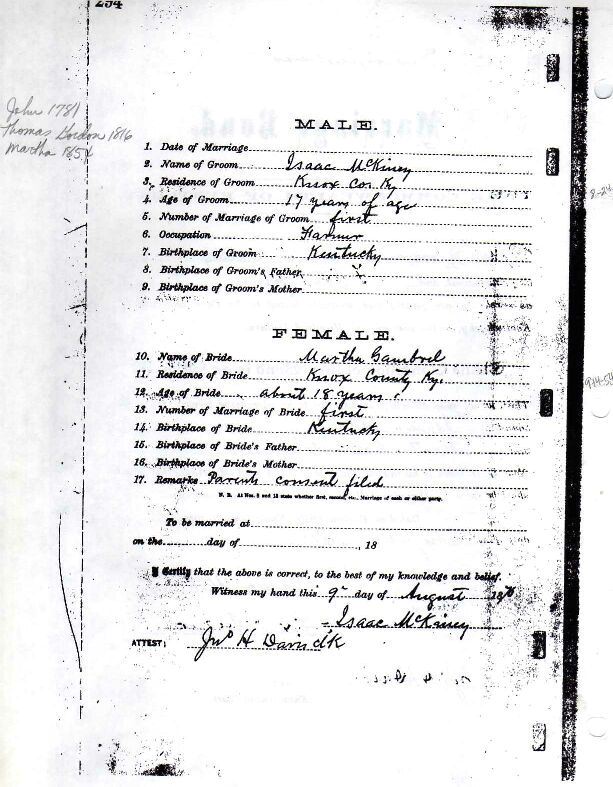 234
John 1781
Thomas Gordon 1816
Martha 1854
MALE.
1. Date of Marriage
2. Name of Groom Isaac McKiney
3. Residence of Groom Knox Co. Ky
4. Age of Groom 17 years of age
5. Number of Marriage of Groom first
6. Occupation Farmer
7. Birthplace of Groom Kentucky
8. Birthplace of Groom's Father
9. Birthplace of Groom's Mother
FEMALE.
10. Name of Bride Martha Gambrel
11. Residence of Bride Knox County Ky.
12. Age of Bride about 18 years
13. Number of Marriage of Bride first
14. Birthplace of Bride Kentucky
15. Birthplace of Bride's Father
16. Birthplace of Bride's Mother
17. Remarks Parents consent filed
N. B. At Nos. 5 and 13 state whether first, second, etc., Marriage of each or either party.
To be married at
on the day of , 18
I Certify that the above is correct, to the best of my knowledge and belief.
Witness my hand this 9" day of August 18
Isaac McKiney
ATTEST: Jno H Davis clk